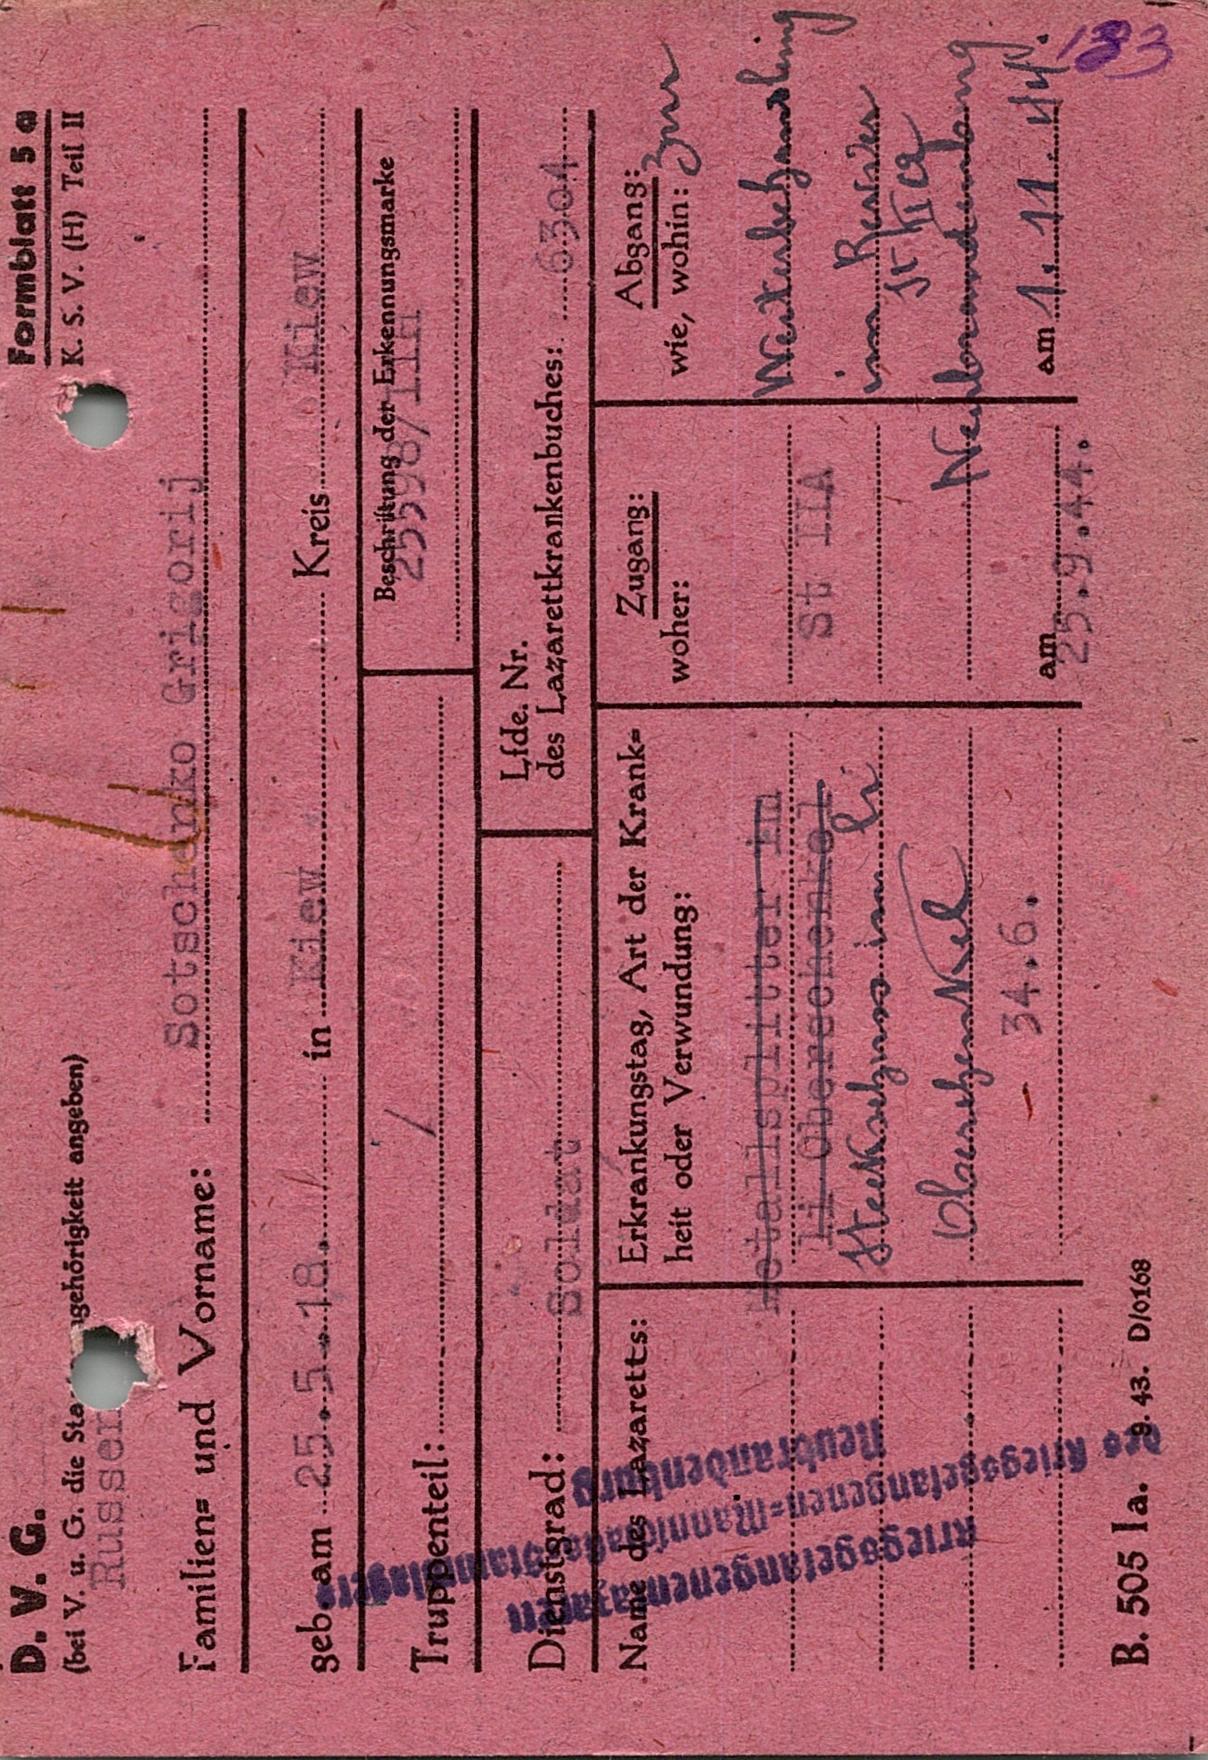 D. V. G.
Formblatt 5 a
(bei V. u. G. die Staatsangehörigkeit angeben)
K. S. V. (H) Teil II
Russen
Familien= und Vorname: Sotschenko Grigorij
geb. am 25.5.18. in Kiew Kreis Kiew
Truppenteil: /
Beschriftung der Erkennungsmarke
25598/IIH
Dienstgrad: Soldat
Lfde. Nr.
des Lazarettkrankenbuches: 6304
Name des Lazaretts:
Kriegsgefangenenlazarett
des Kriegsgefangenen=Mannsch.
Stammlagers
Neubrandenburg
Erkrankungstag, Art der Krank=
heit oder Verwundung:
Metallsplitter im
li Oberschenkel
Steckschuss im li
Oberschenkel
- 34.6.
Zugang:
woher:
St IIA
am 25.9.44.
Abgang:
wie, wohin: zur
Weiterbehandlung
im Revier
St IIa
Neubrandenburg
am 1.11.44.
B. 505 Ia. 9. 43. D/0168